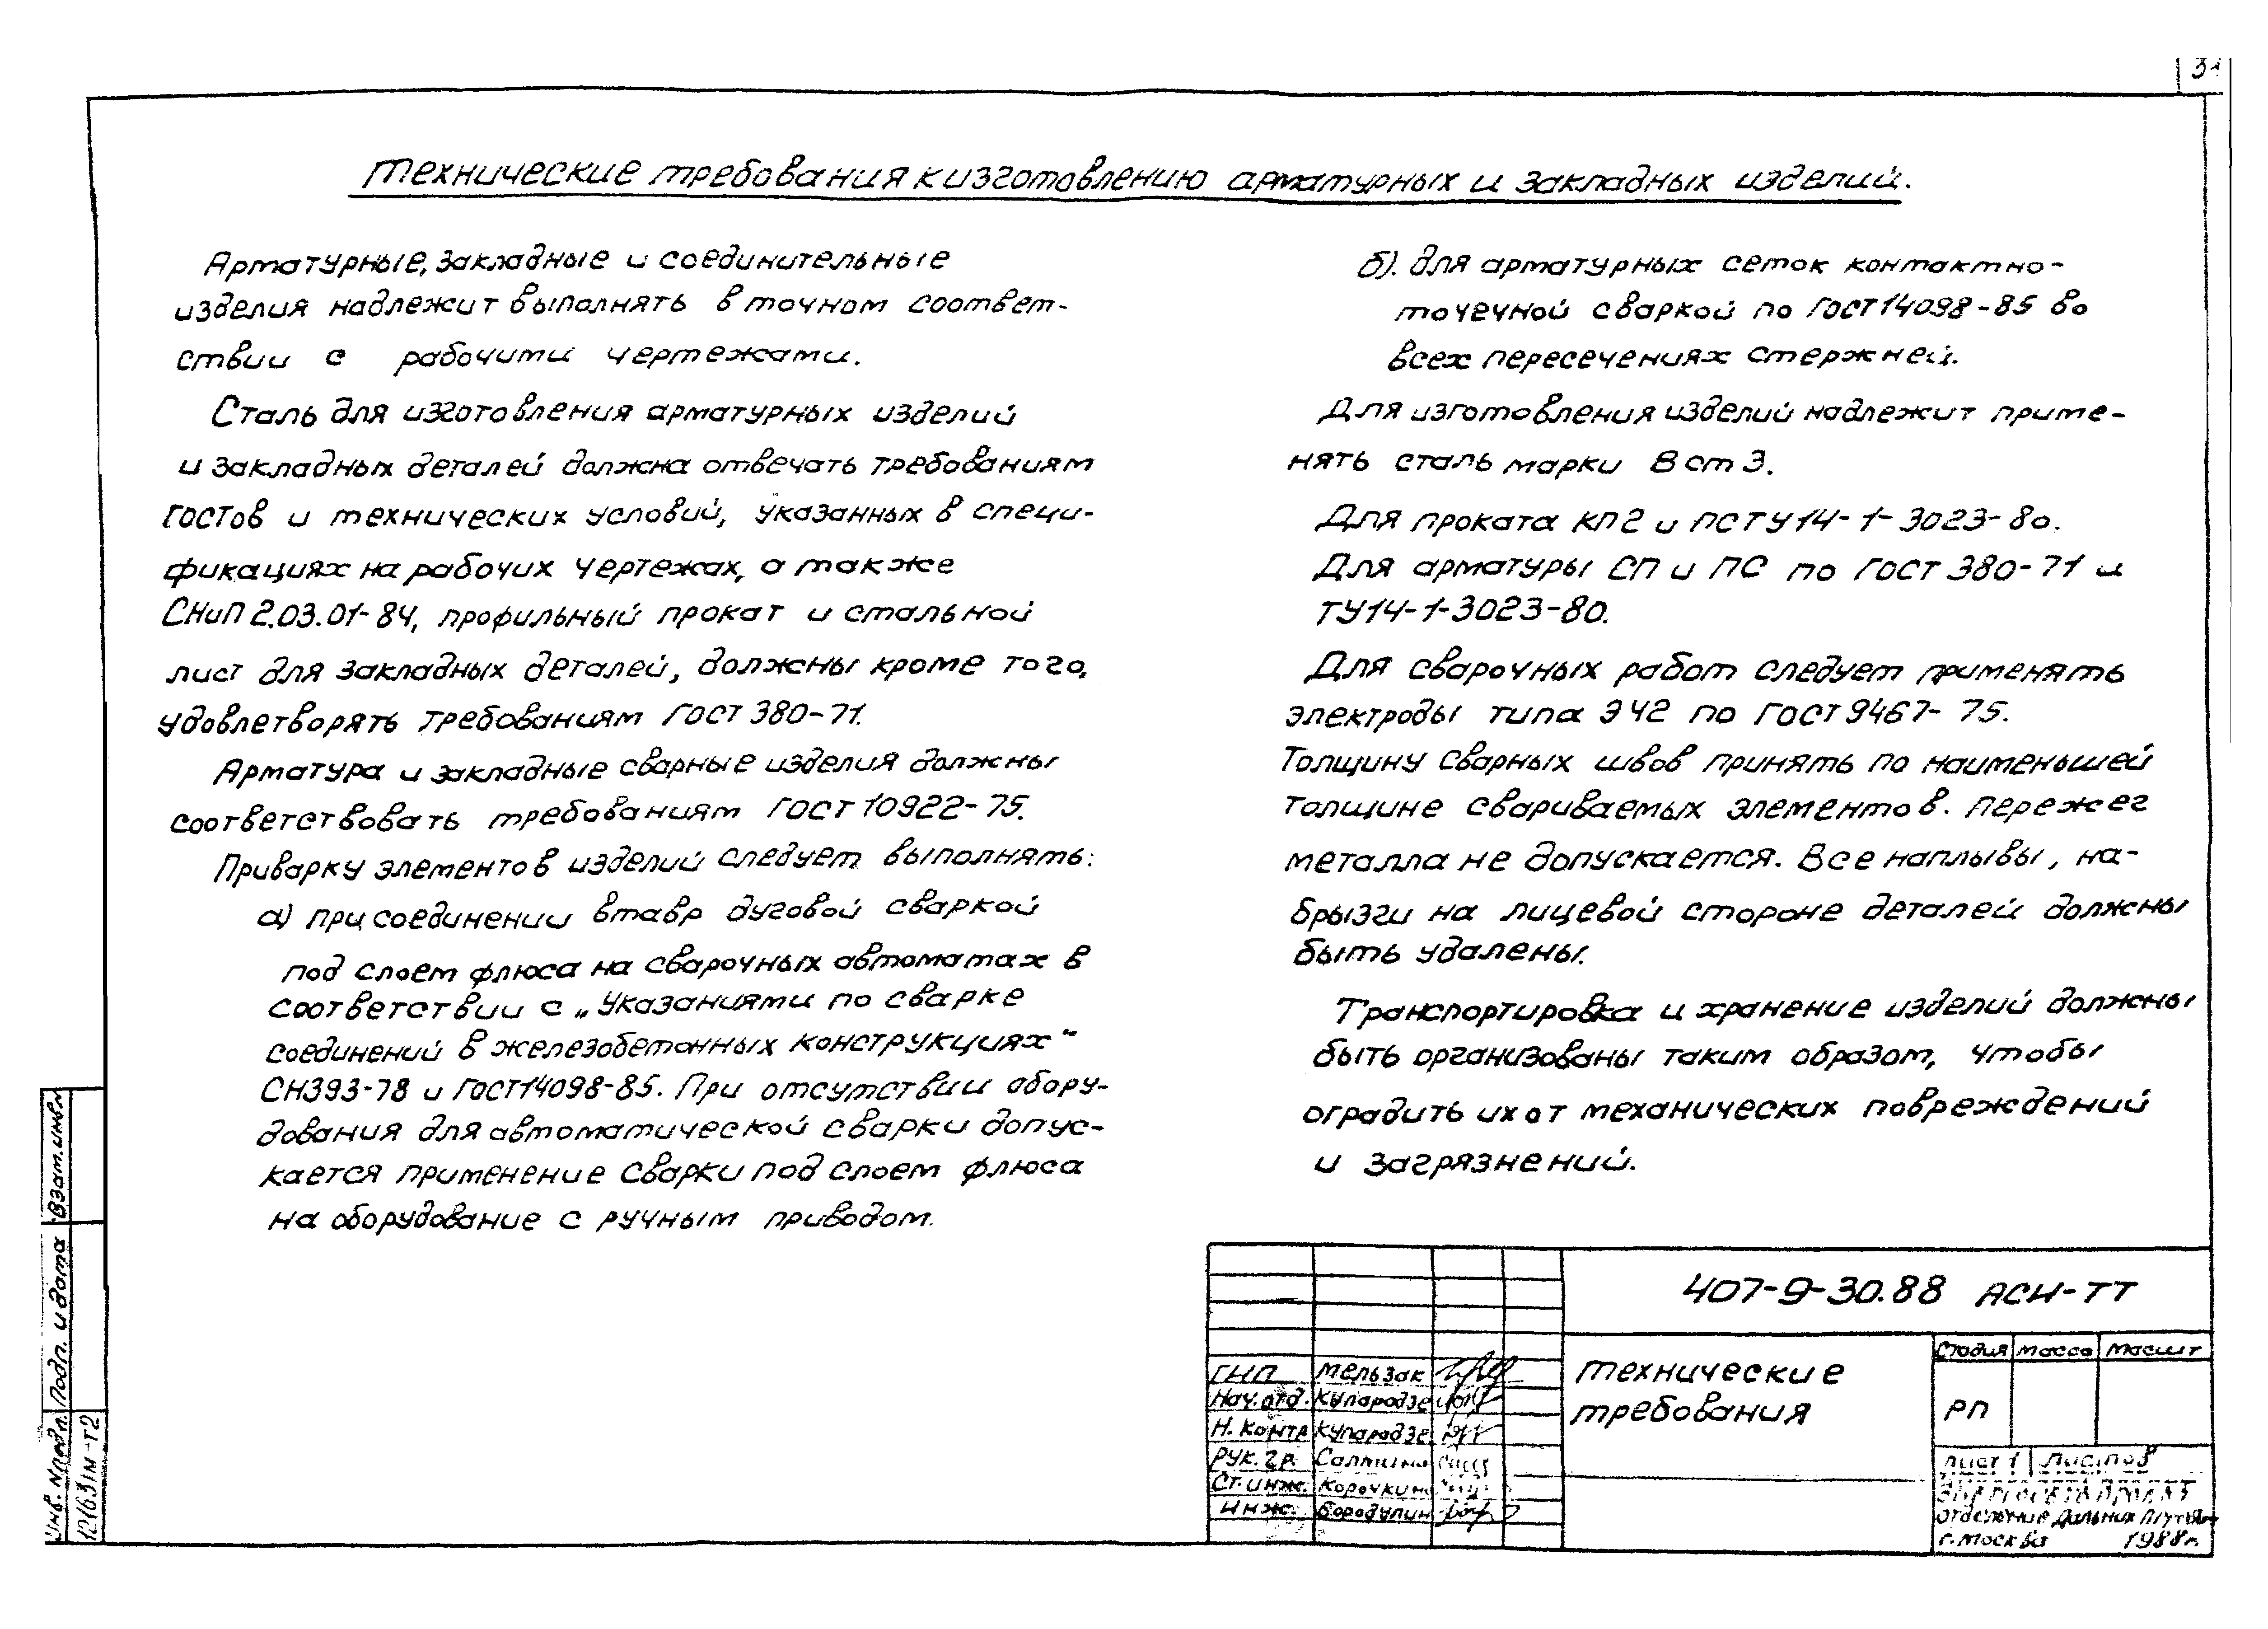 Технические требования к изготовлению арматурных и закладных изделий.
Арматурные, закладные и соединительные
изделия надлежит выполнять в точном соответ-
ствии с рабочими чертежами.
Сталь для изготовления арматурных изделий
и закладных деталей должна отвечать требованиям
ГОСТов и технических условий, указанных в специ-
фикациях на рабочих чертежах, а также
СНиП 2.03.01-84, профильный прокат и стальной
лист для закладных деталей, должны кроме того,
удовлетворять требованиям ГОСТ 380-71.
Арматура и закладные сварные изделия должны
соответствовать требованиям ГОСТ 10922-75.
Приварку элементов изделий следует выполнять:
а) при соединении втавр дуговой сваркой
под слоем флюса на сварочных автоматах в
соответствии с „Указаниями по сварке
соединений в железобетонных конструкциях"
СН393-78 и ГОСТ14098-85. При отсутствии обору-
дования для автоматической сварки допус-
кается применение сварки под слоем флюса
на оборудование с ручным приводом.
б). для арматурных сеток контактно-
точечной сваркой по ГОСТ14098-85 во
всех пересечениях стержней.
Для изготовления изделий надлежит приме-
нять сталь марки В ст 3.
Для проката КП2 и ПС ТУ14-1-3023-80.
Для арматуры СП и ПС по ГОСТ 380-71 и
ТУ14-1-3023-80.
Для сварочных работ следует применять
электроды типа Э42 по ГОСТ 9467-75.
Толщину сварных швов принять по наименьшей
толщине свариваемых элементов. Пережег
металла не допускается. Все наплывы, на-
брызги на лицевой стороне деталей должны
быть удалены.
Транспортировка и хранение изделий должны
быть организованы таким образом, чтобы
оградить их от механических повреждений
и загрязнений.
407-9-30.88 АСИ-ТТ
Технические
требования
Стадия Масса Масшт
РП
Лист 1 Листов
Отделение Дальних
г. Москва 1988г.
ГИП Мельзак
Нач. отд. Купарадзе
Н. контр Купарадзе
Рук. гр. Салтина
Ст. инж. Корочкин
Инж. Бородулин
Взам. инв№
Подп. и дата
Инв. №подл.
12163тм-т2